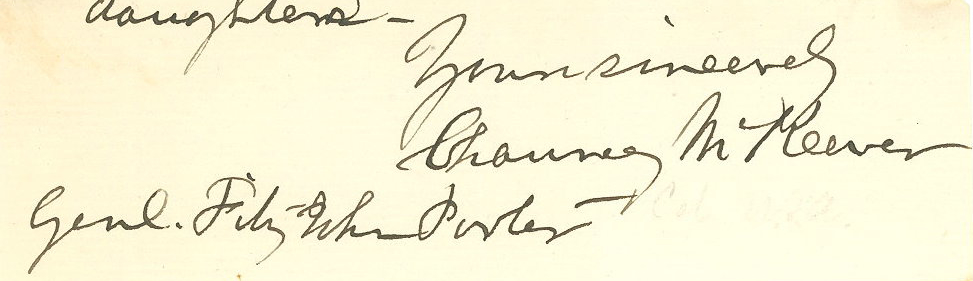 daughters –
Yours sincerely
Chauncey McKeever
Genl. Fitz-John Porter